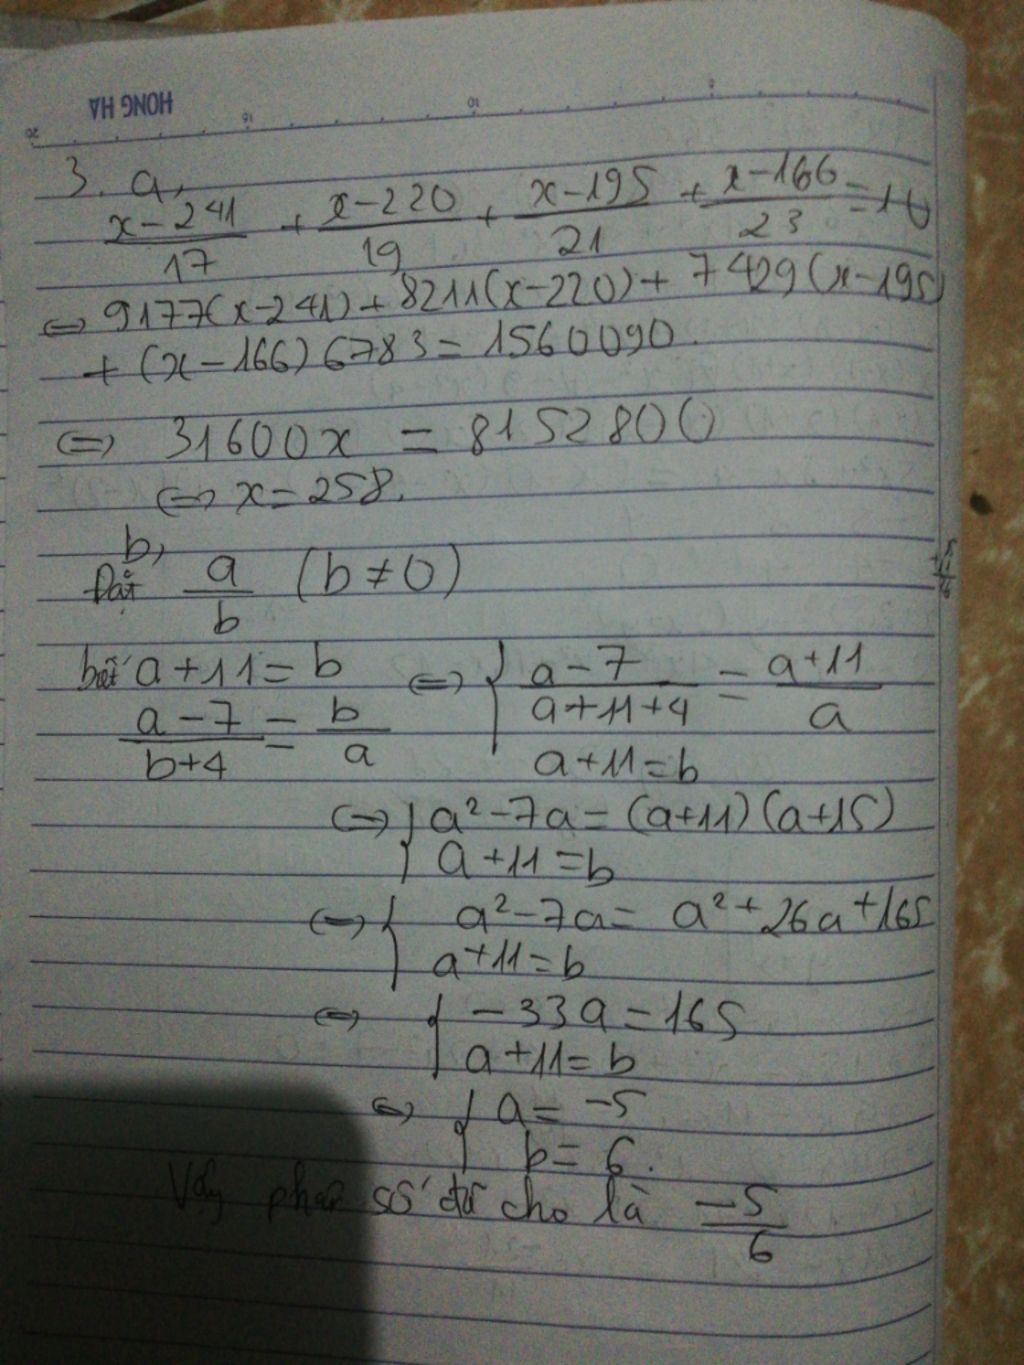 HONG HA
20 15 10 5
3. a,
x-241/17 + x-220/19 + x-195/21 + x-166/23 = 10
⇔ 9177(x-241) + 8211(x-220) + 7429(x-195)
+ (x-166) 6783 = 1560090.
⇔ 31600x = 8152800
⇔ x = 258.
b,
Đặt a/b (b ≠ 0)
biết a+11 = b ⇔ { a-7/a+11+4 = a+11/a
a-7/b+4 = b/a a+11 = b
⇔ { a²-7a = (a+11)(a+15)
a+11 = b
⇔ { a²-7a = a²+26a+165
a+11 = b
⇔ { -33a = 165
a+11 = b
⇔ { a = -5
b = 6.
Vậy phân số đã cho là -5/6